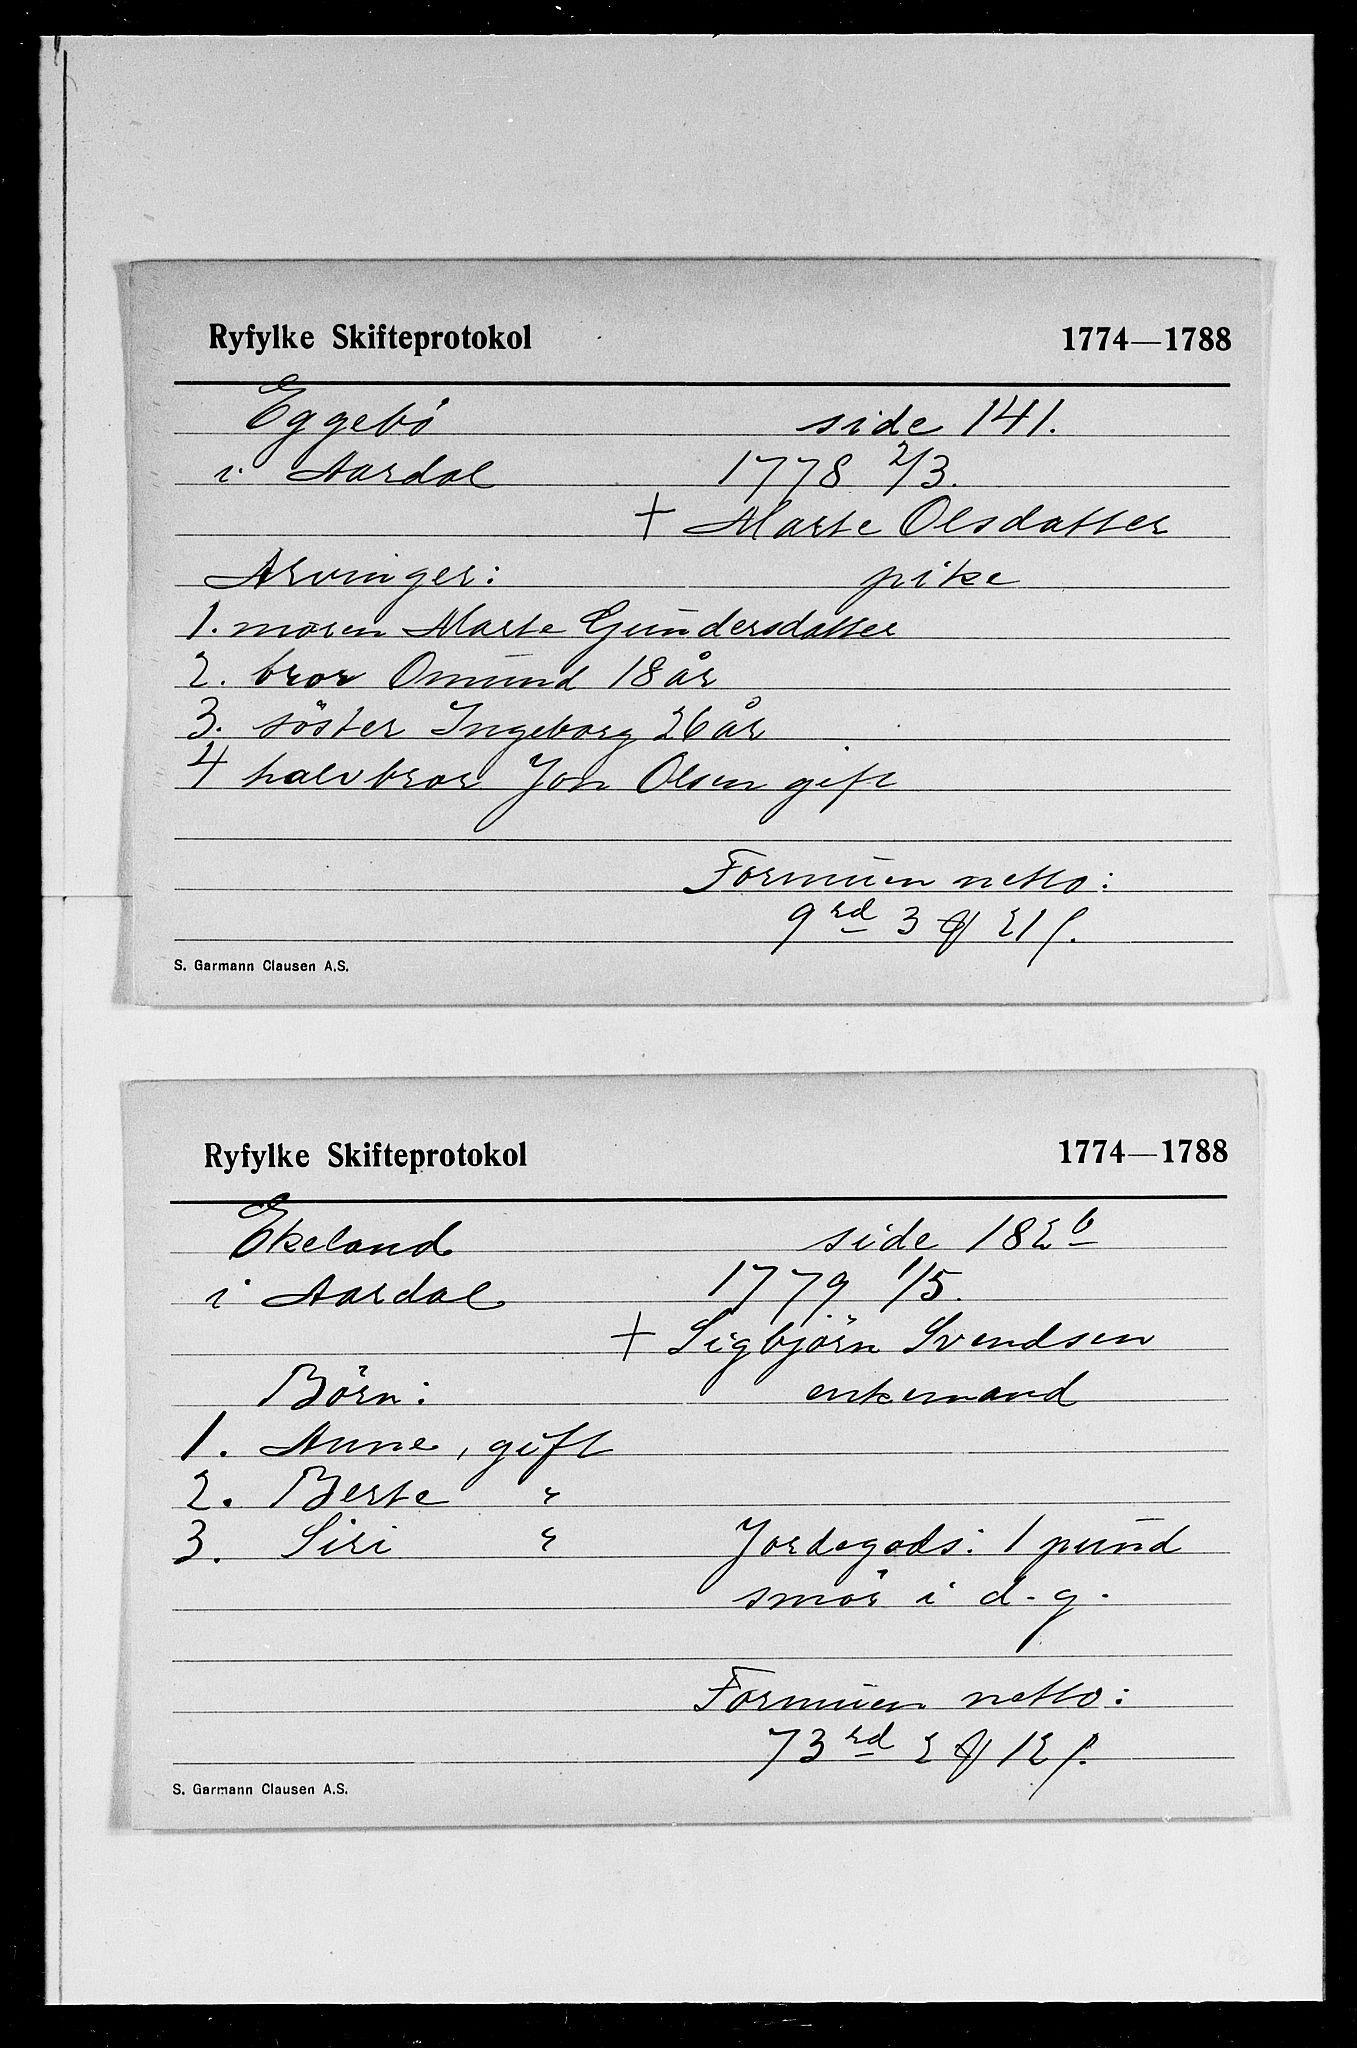 Ryfylke Skifteprotokol 1774—1788
Eggebö side 141.
i Aardal 1778 2/3.
+ Marte Olsdatter
Arvinger: pike
1. moren Marte Gundersdatter
2. bror Omund 18 år
3. söster Ingeborg 26 år
4 halvbror Jon Olsen gift
Formuen netto:
9 rd 3 ꝣ 21 ſ.
S. Garmann Clausen A.S.
Ryfylke Skifteprotokol 1774—1788
Ekeland side 182 b
i Aardal 1779 1/5.
+ Sigbjörn Svendsen
Börn: enkemand
1. Anne, gift
2. Berte "
3. Siri " Jordegods: 1 pund
smör i d. g.
Formuen netto:
73 rd 2 ꝣ 12 ſ.
S. Garmann Clausen A.S.